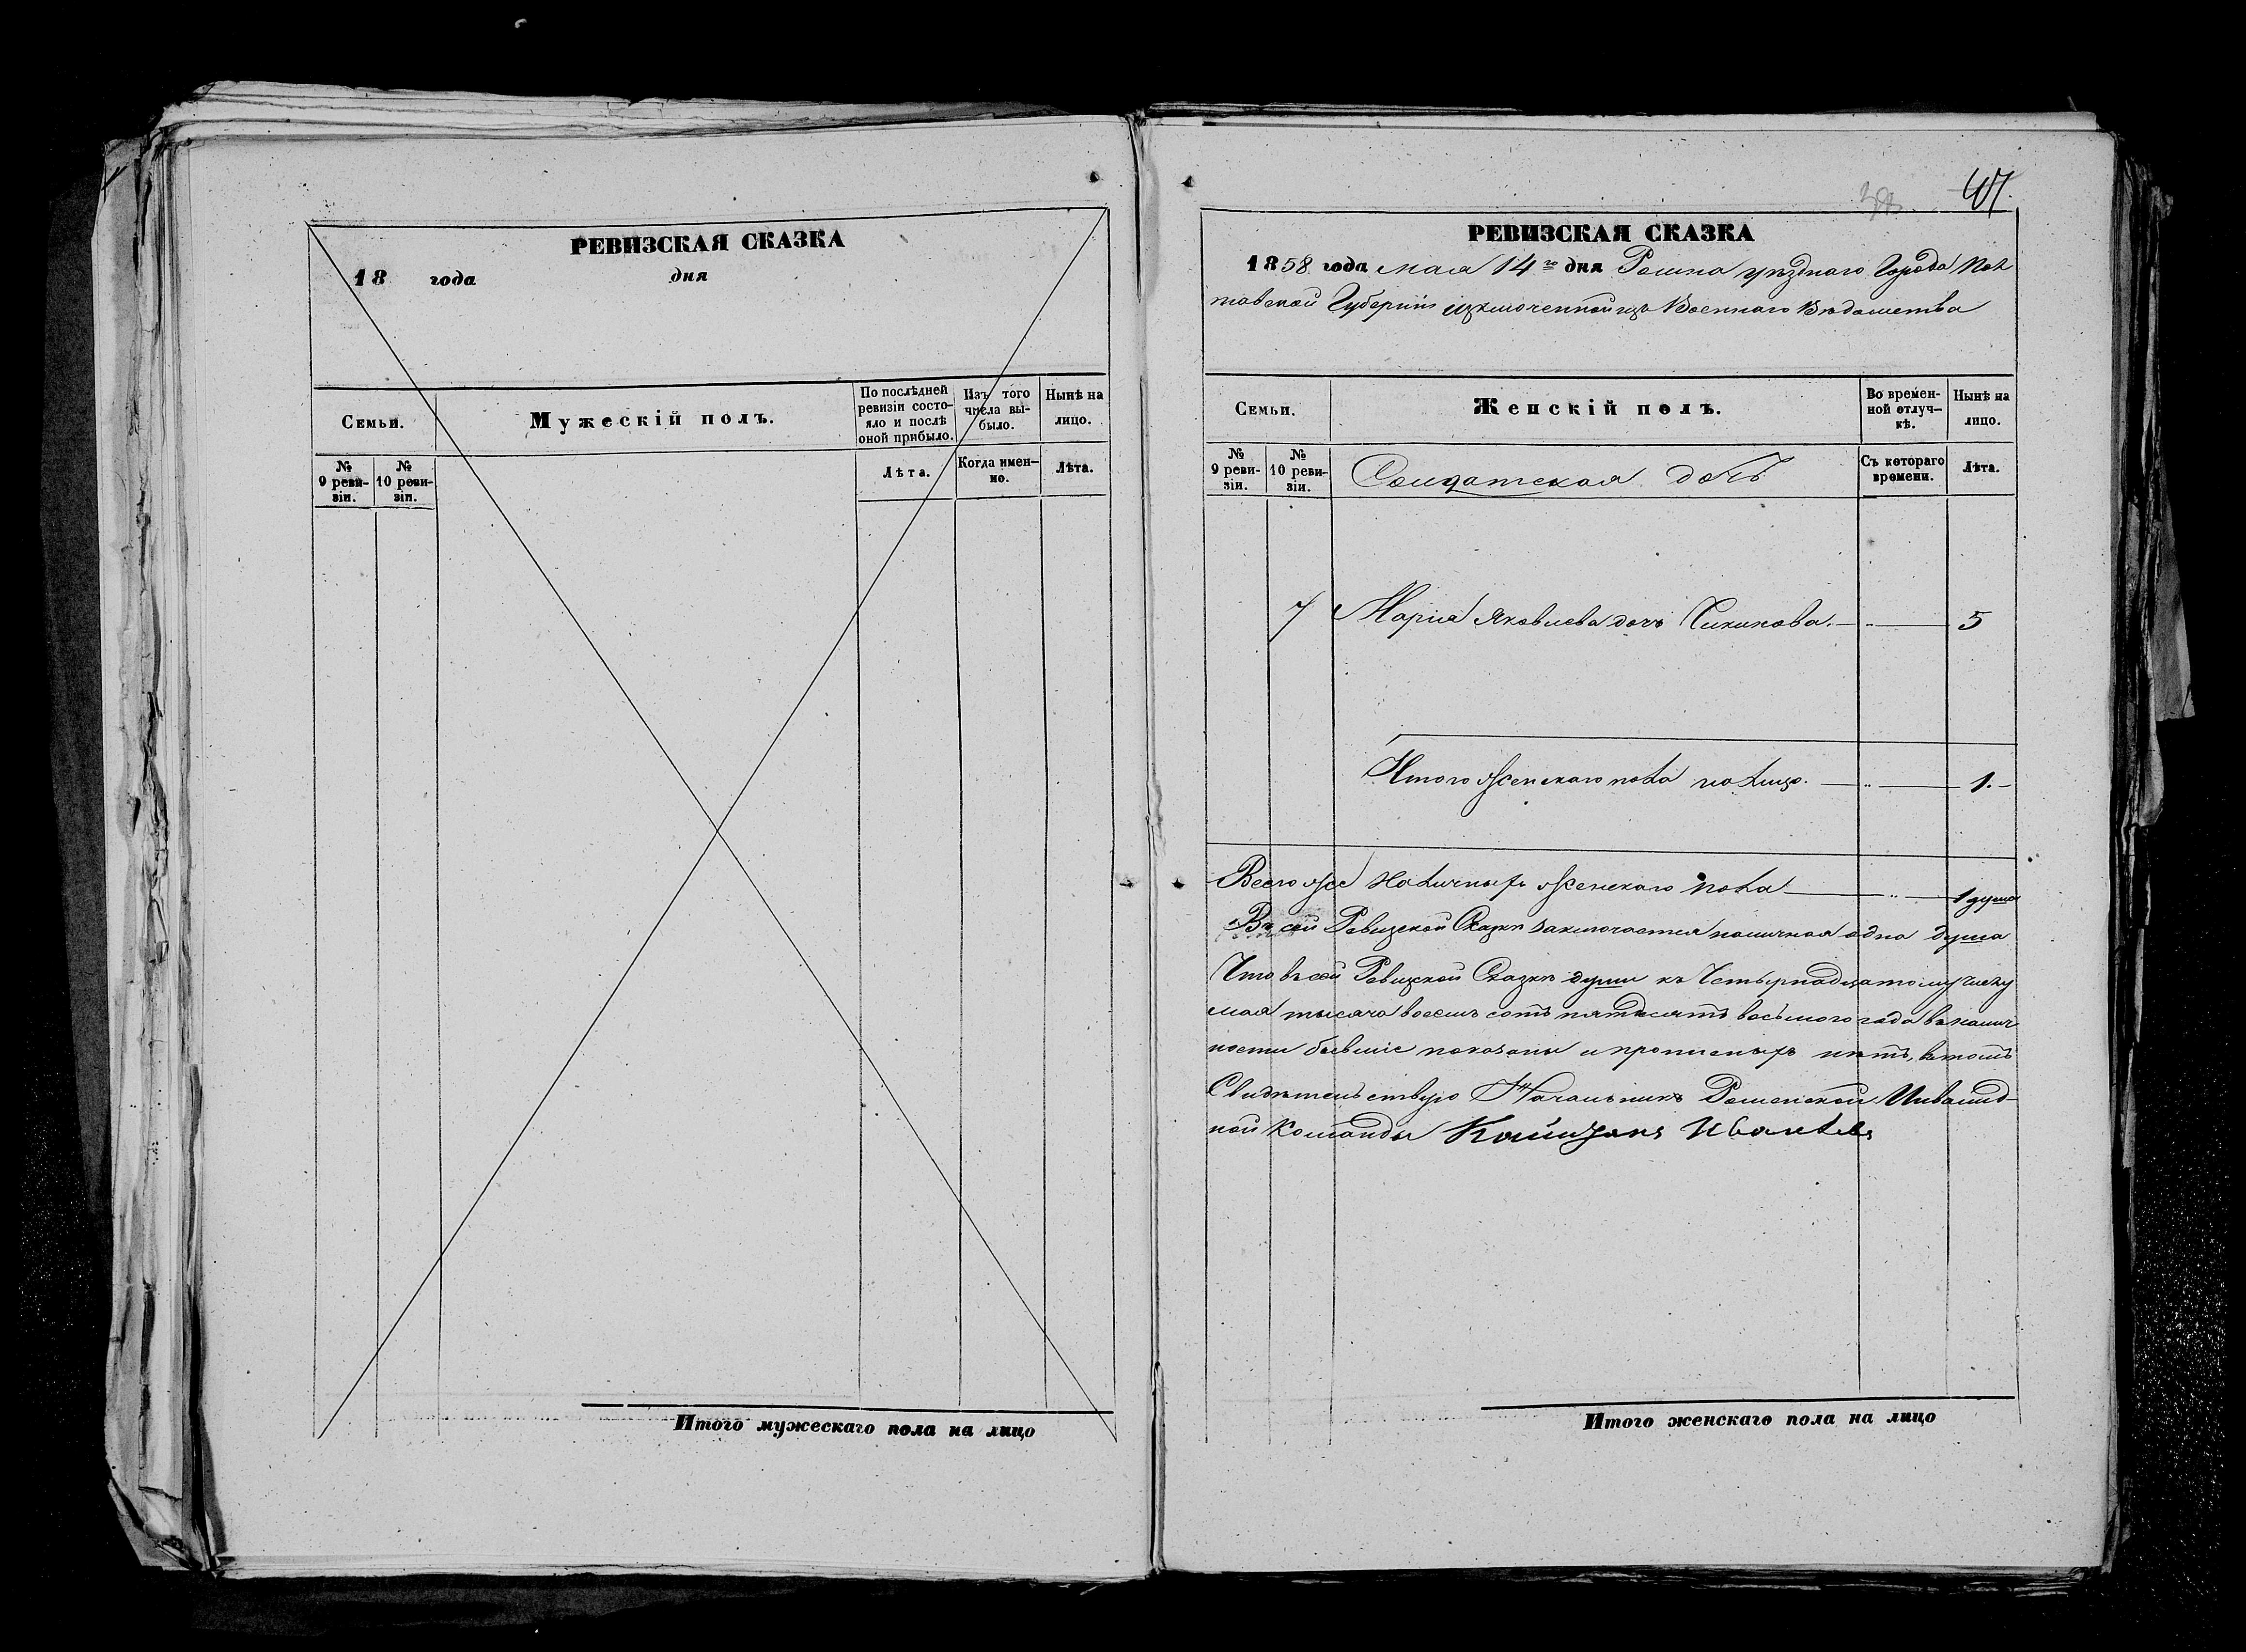 РЕВИЗСКАЯ СКАЗКА
18 года дня
Семьи.
Мужескій полъ.
По послѣдней ревизіи состояло и послѣ оной прибыло.
Изъ того числа выбыло.
Нынѣ на лицо.
№ 9 ревизіи.
№ 10 ревизіи.
Лѣта.
Когда именно.
Лѣта.
Итого мужескаго пола на лицо
47.
РЕВИЗСКАЯ СКАЗКА
1858 года мая 14го дня Ромна уѣзднаго Города Пол
тавской Губерніи изключенной изъ Военнаго Вѣдомства
Семьи.
Женскій полъ.
Во временной отлучкѣ.
Нынѣ на лицо.
№ 9 ревизіи.
№ 10 ревизіи.
Солдатская дочь
Съ котораго времени.
Лѣта.
7 Марія Яковлева дочь — „ — 5
Итого женскаго пола на лицо. — „ — 1. —
Всего же наличныхъ женскаго пола — „ — 1 душа
Въ сей Ревизской Сказкѣ заключается наличная одна душа
Что въ сей Ревизской Сказкѣ души къ Четырнадцатому числу
мая тысяча восемь сотъ пятдесятъ восьмого года въ налич
ности бывшіе показаны и прописныхъ нѣтъ, въ томъ
Свидѣтельствую Начальникъ Роменской Инвалид-
ной Команды
Итого женскаго пола на лицо